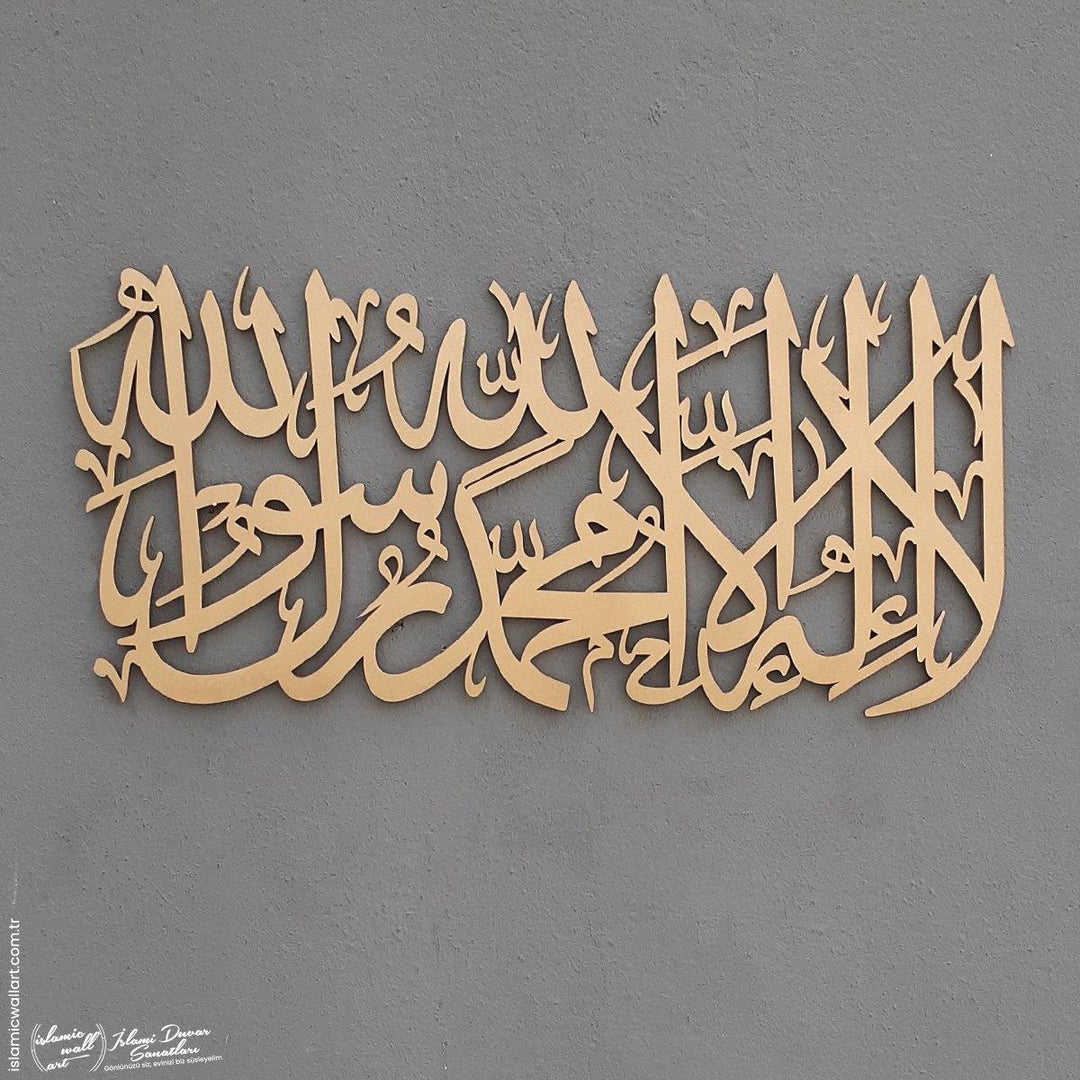 لا إله إلا الله محمد رسول الله
islamicwallart.com.tr
islamic wall art
İslami Duvar Sanatları
Gönlünüzü siz, evinizi biz süsleyelim